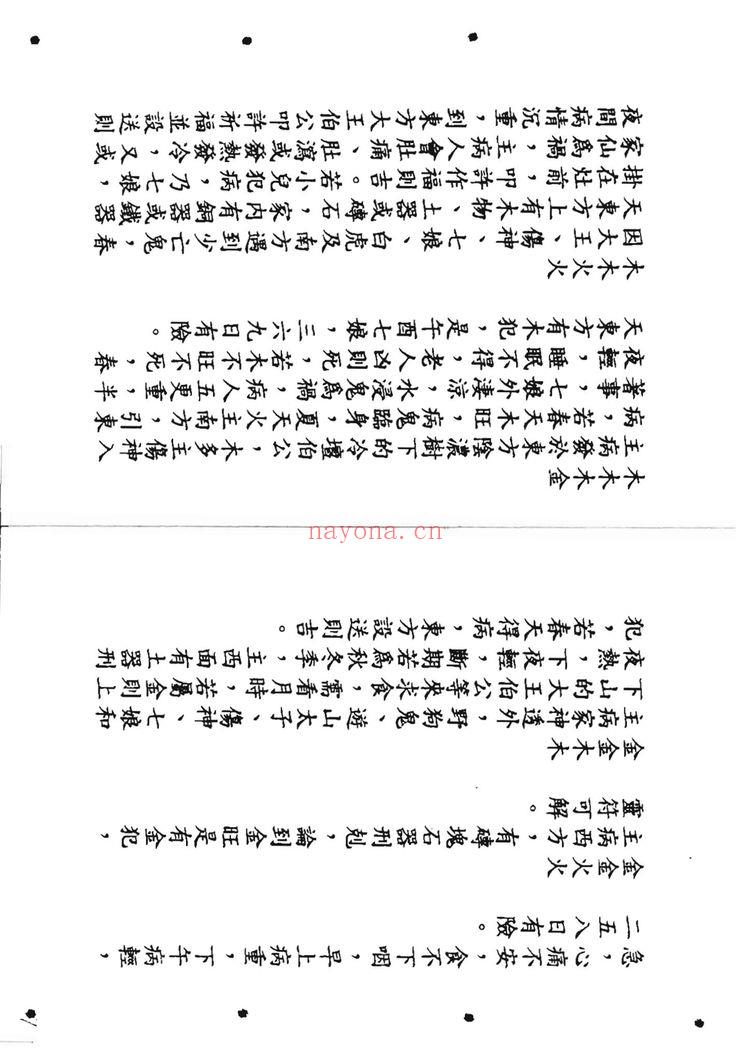 急，心痛不安，食不下咽，早上病重，下午病輕，
二五八日有險。
金金火火
主病西方，有磚塊石器刑剋，論到金旺是有金犯，
靈符可解。
金金木木
主病家神透外，野狗鬼、遊山太子、傷神、七娘和
下山的大王伯公等來求食，需看月時，若屬金則上
夜熱，下夜輕，斷期若爲秋冬季，主西面有土器刑
犯，若春天得病，東方設送則吉。
木木木金
主病發於東方陰濃樹下的冷壇伯公，木多主傷神入
病，若春天木旺，病鬼臨身，夏天火主南方，引東
著事，七娘外淒涼，水浸鬼爲禍，病人五更重，半
夜輕，睡眠不得，老人凶則死，若木不旺不死，春
天東方有木犯，是午酉七娘，三六九日有險。
木木火火
因大王、傷神、七娘、白虎及南方遇到少亡鬼，春
天東方上有木物、土器或磚石，家內有銅器或鐵器
掛在灶前，叩許作福則吉。若小兒犯病，乃七娘，
家仙爲禍，主病人會肚痛、肚瀉或發熱發冷，又或
夜間病情沉重，到東方大王伯公叩許祈福並設送則
nayona.cn